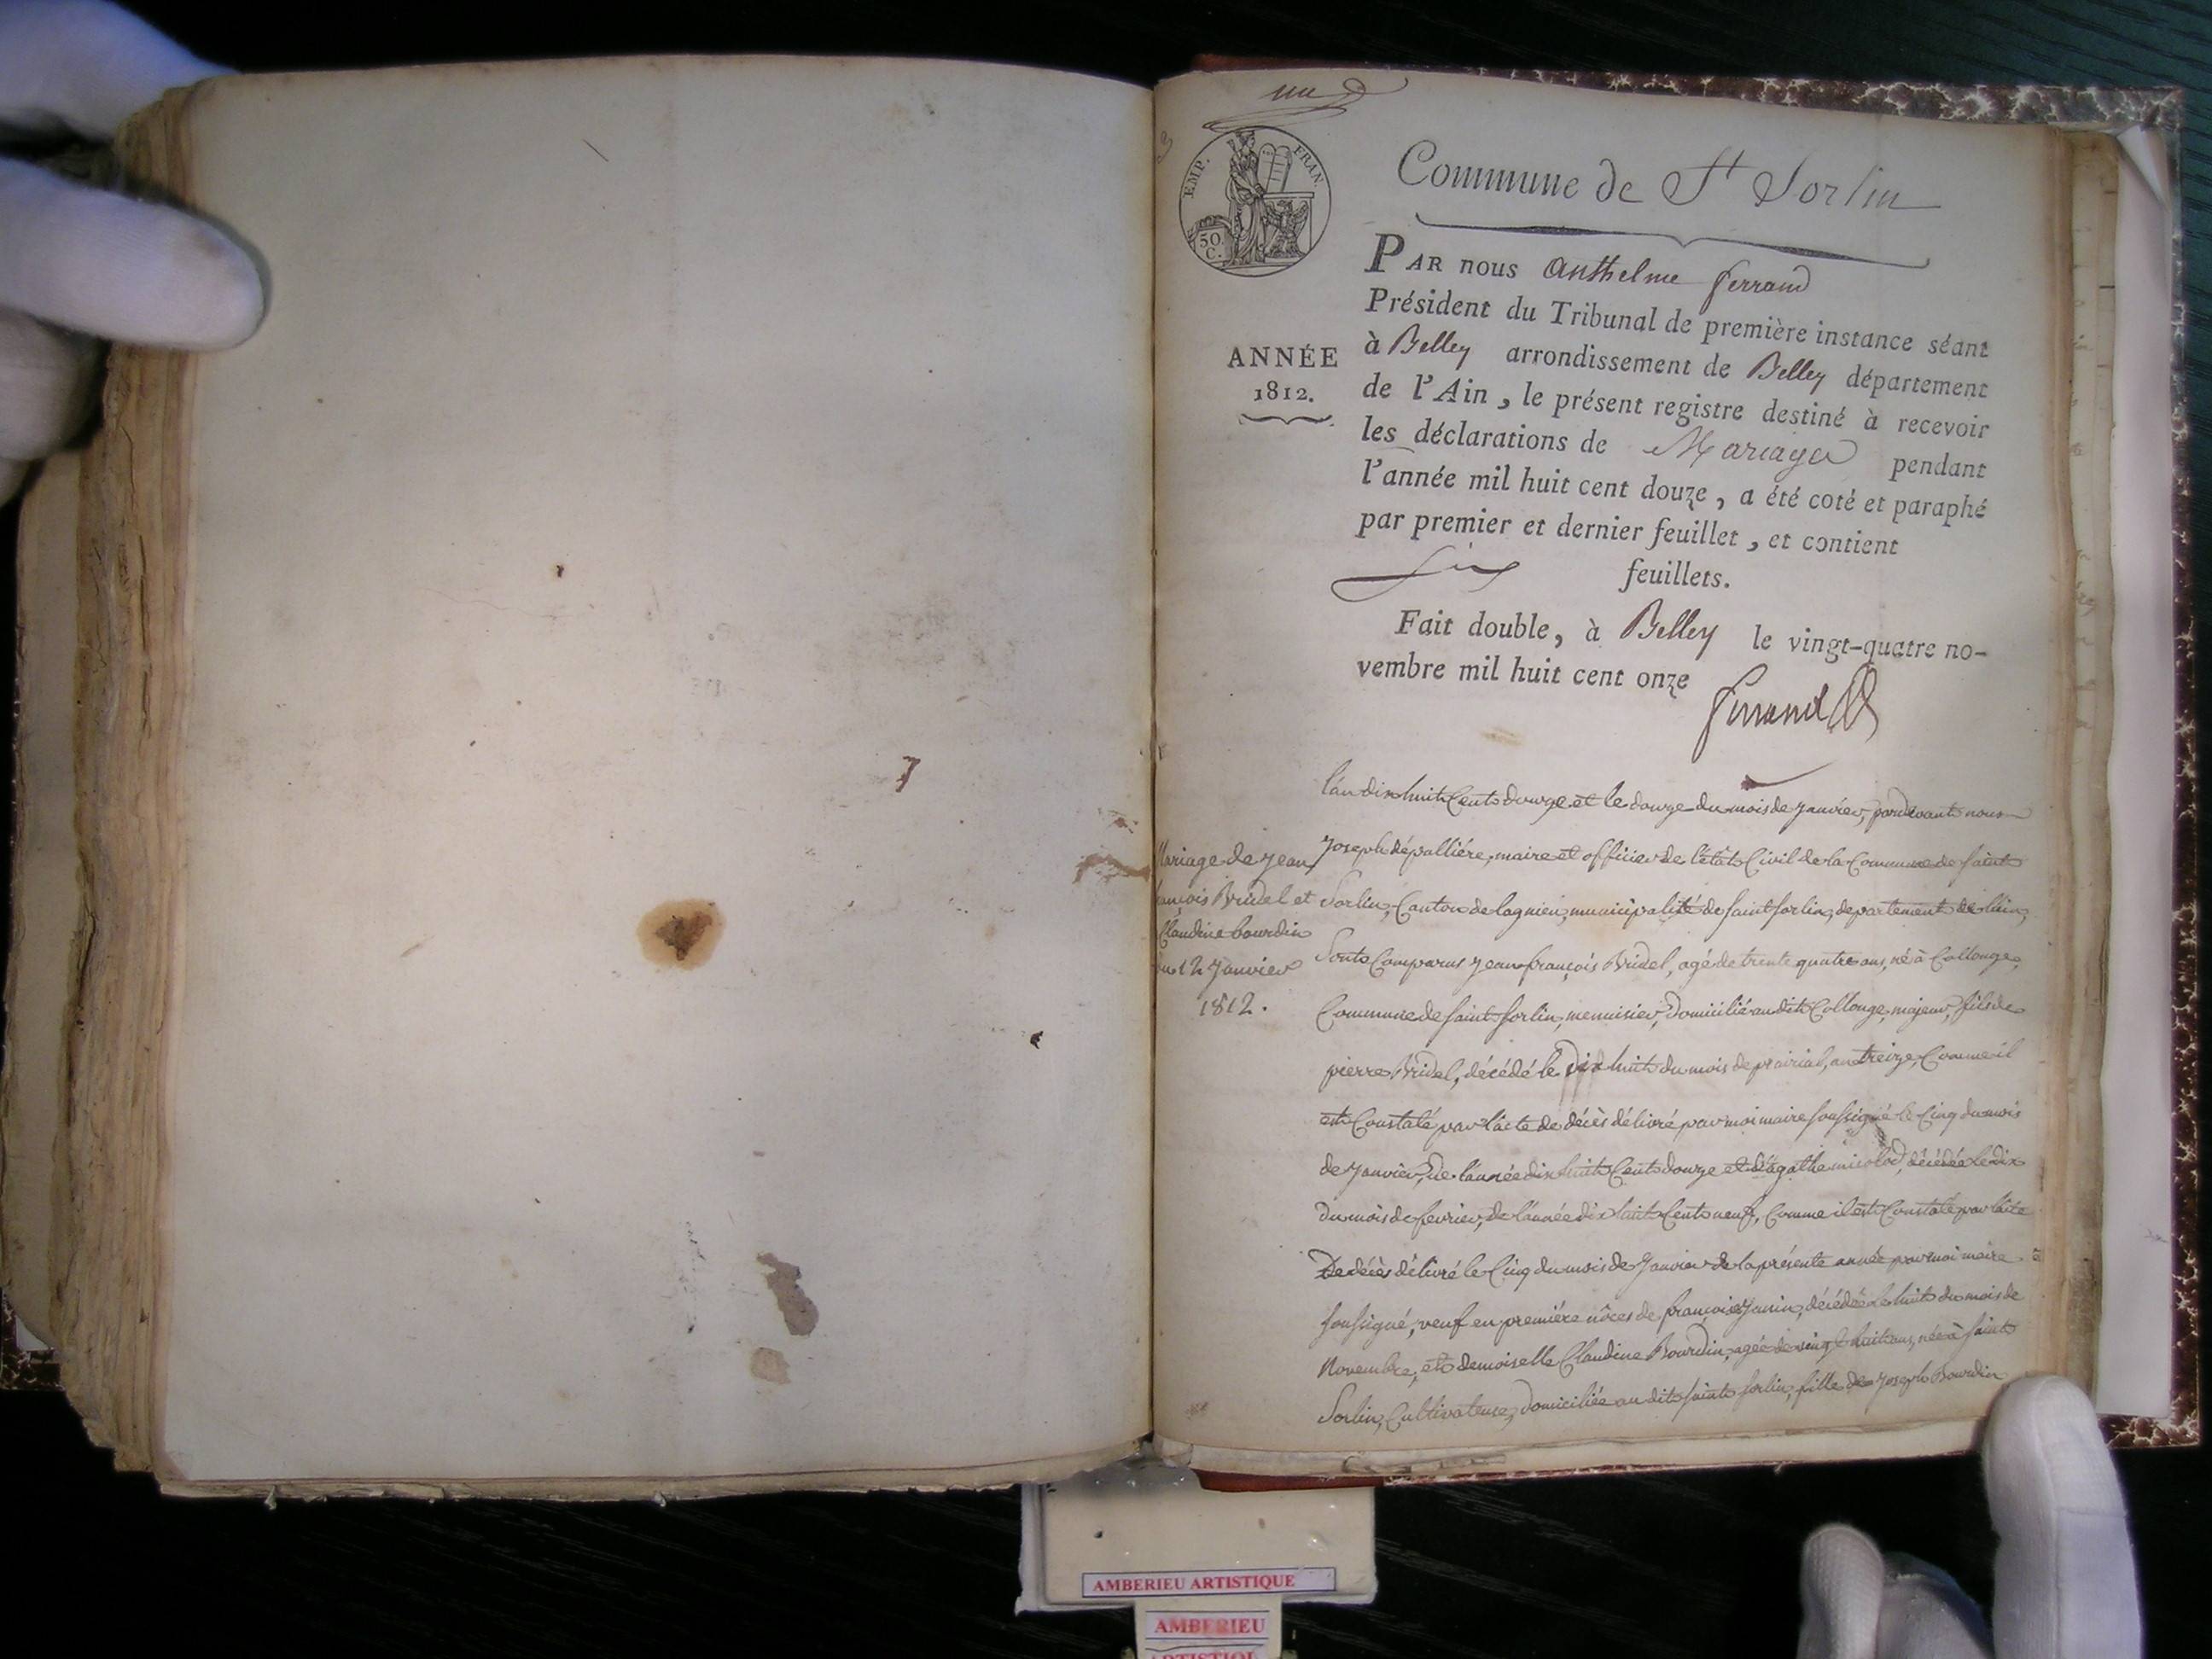 un
EMP. FRAN.
50.
C.
Commune de St Sorlin
PAR nous Anthelme ferrand
Président du Tribunal de première instance séant
à Belley arrondissement de Belley département
ANNÉE
1812.
de l'Ain, le présent registre destiné à recevoir
les déclarations de Mariage pendant
l'année mil huit cent douze, a été coté et paraphé
par premier et dernier feuillet, et contient
six feuillets.
Fait double, à Belley le vingt-quatre no-
vembre mil huit cent onze
ferrand
l'an dix huit Cents douze et le douze du mois de janvier, pardevant nous
Joseph dépalliére, maire et officier de l'état Civil de la Commune de Saint
Sorlin, Canton de lagnieu, municipalité de Saint Sorlin, departement de l'ain,
Sont Comparus jean françois Bridel, agé de trente quatre ans, né à Collonge,
Commune de Saint Sorlin, menuisier, domicilié au dit Collonge, majeur, fils de
pierre Bridel, décédé le dix huit du mois de prairial, an treize, Comme il
est Constaté par l'acte de décès délivré par moi maire soussigné le Cinq du mois
de janvier, de l'année dix huit Cents douze et d'agathe micolod, décédée le dix
du mois de fevrier, de l'année dix huit Cents neuf, Comme il est Constaté par l'acte
De décès délivré le Cinq du mois de Janvier de la présente année par moi maire
soussigné, veuf en premiére nôces de françoise Janin, décédée le huit du mois de
Novembre, et demoiselle Claudine Bourdin, agée de vingt huit ans, née à Saint
Sorlin, Cultivateuse, domiciliée au dit Saint Sorlin, fille de Joseph Bourdin
Mariage de jean
françois Bridel et
Claudine bourdin
du 12 Janvier
1812.
AMBERIEU ARTISTIQUE
AMBERIEU
ARTISTIQUE